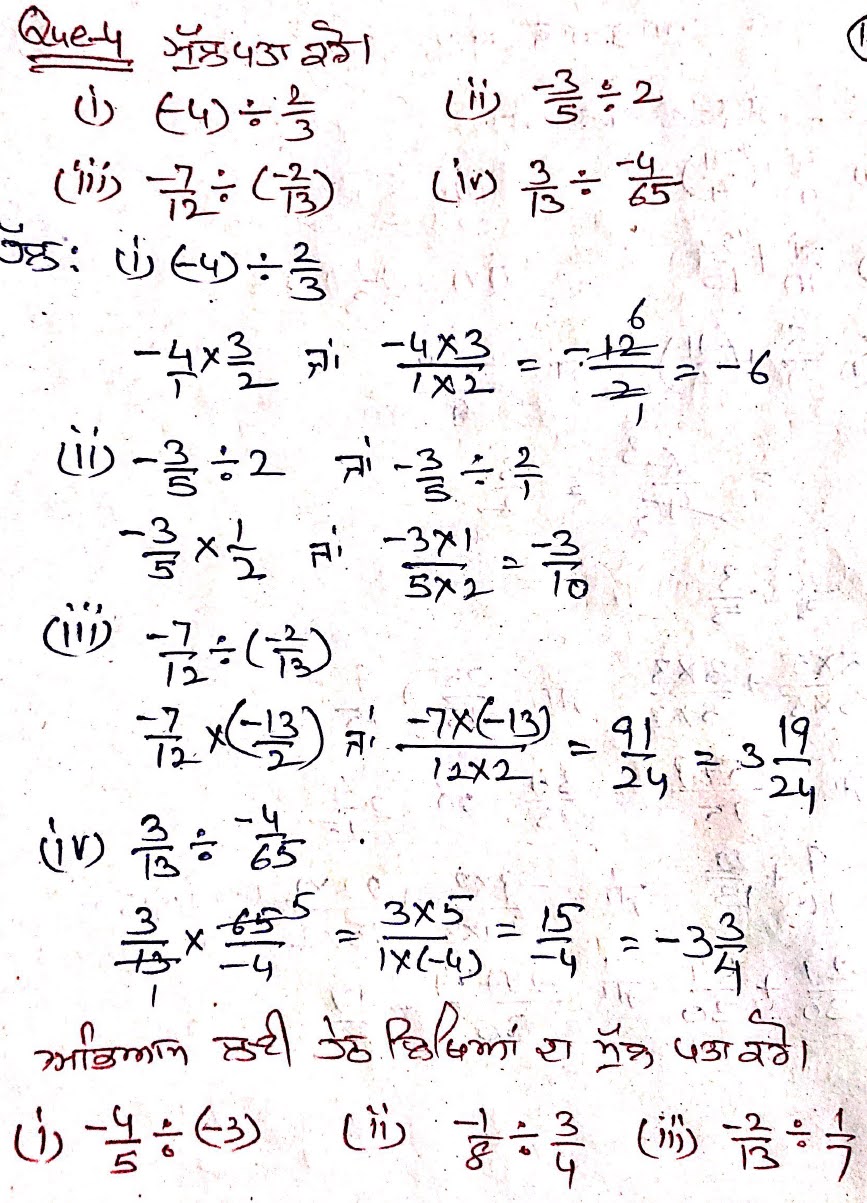 Que-4 ਮੁੱਲ ਪਤਾ ਕਰੋ।
(i) (-4) ÷ 2/3 (ii) -3/5 ÷ 2
(iii) -7/12 ÷ (-2/13) (iv) 3/13 ÷ -4/65
ਹੱਲ: (i) (-4) ÷ 2/3
-4/1 × 3/2 ਜਾਂ -4×3/1×2 = -12/2 6 1 = -6
(ii) -3/5 ÷ 2 ਜਾਂ -3/5 ÷ 2/1
-3/5 × 1/2 ਜਾਂ -3×1/5×2 = -3/10
(iii) -7/12 ÷ (-2/13)
-7/12 × (-13/2) ਜਾਂ -7×(-13)/12×2 = 91/24 = 3 19/24
(iv) 3/13 ÷ -4/65
3/13 1 × 65/-4 5 = 3×5/1×(-4) = 15/-4 = -3 3/4
ਅਭਿਆਸ ਲਈ ਹੇਠ ਲਿਖਿਆਂ ਦਾ ਮੁੱਲ ਪਤਾ ਕਰੋ।
(i) -4/5 ÷ (-3) (ii) -1/8 ÷ 3/4 (iii) -2/13 ÷ 1/7